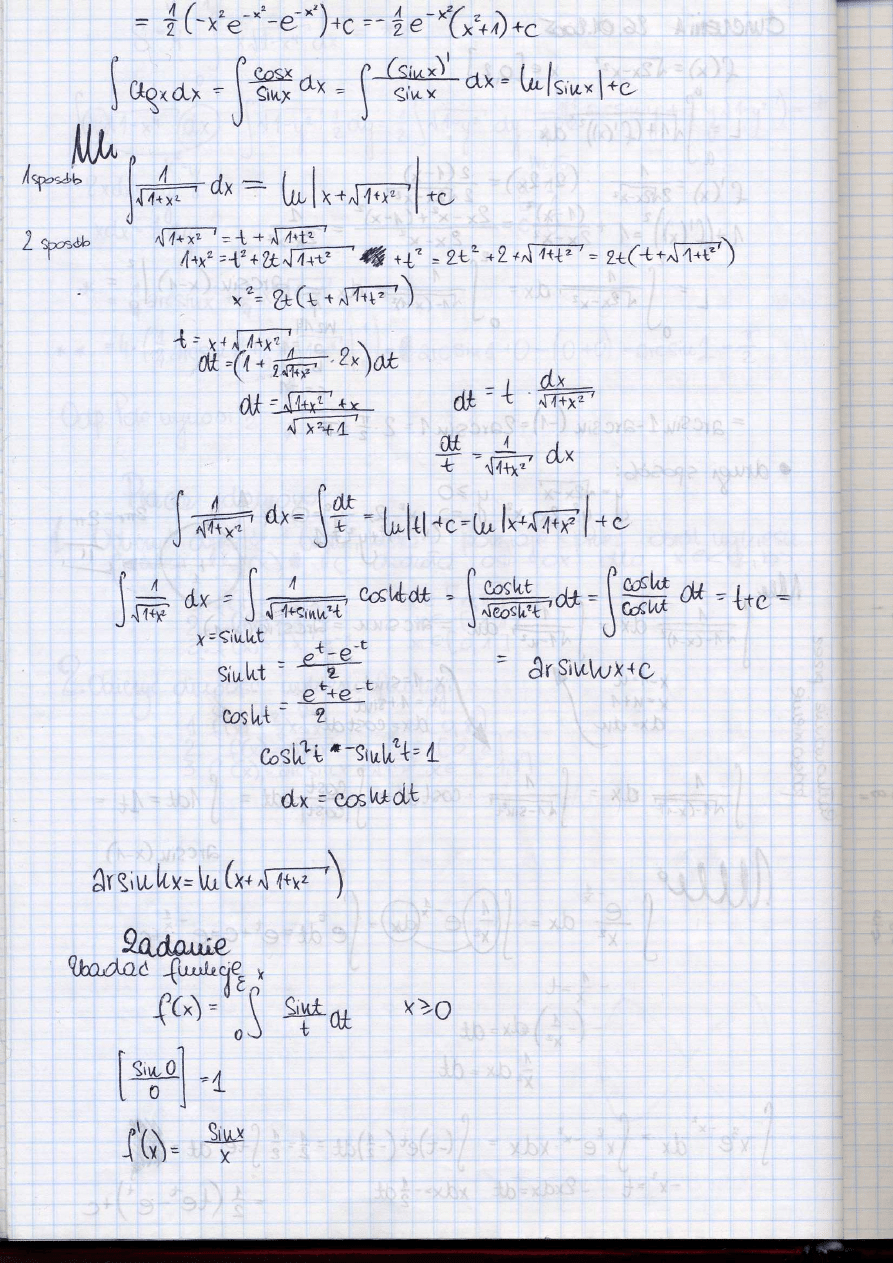 = 1/2 (-x²e^(-x²) - e^(-x²)) + c = -1/2 e^(-x²) (x²+1) + c
∫ ctgx dx = ∫ cosx/sinx dx = ∫ (sinx)'/sinx dx = ln|sinx| + c
1 sposób ∫ 1/√(1+x²) dx = ln|x+√(1+x²)| + c
2 sposób √(1+x²) = t + √(1+t²)
1+x² = t² + 2t√(1+t²) + t² = 2t² + 2 + √(1+t²) = 2t(t+√(1+t²))
x² = 2t(t+√(1+t²))
t = x + √(1+x²)
dt = (1 + 1/(2√(1+x²)) · 2x) dt
dt = (√(1+x²) + x)/√(x²+1) dt = t · dx/√(1+x²)
dt/t = 1/√(1+x²) dx
∫ 1/√(1+x²) dx = ∫ dt/t = ln|t| + c = ln|x+√(1+x²)| + c
∫ 1/√(1+x²) dx = ∫ 1/√(1+sinh²t) cosht dt = ∫ cosht/√(cosh²t) dt = ∫ cosht/cosht dt = t + c =
x = sinht
sinht = (e^t - e^(-t))/2 = arsinhx + c
cosht = (e^t + e^(-t))/2
cosh²t - sinh²t = 1
dx = cosht dt
arsinhx = ln(x+√(1+x²))
Zadanie
Zbadać funkcję
f(x) = ∫₀ˣ sint/t dt x ≥ 0
[sin0/0] = 1
f'(x) = sinx/x